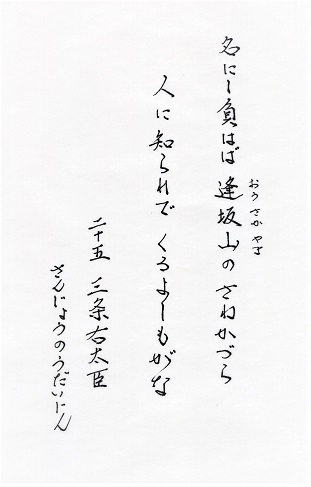 名にし負はば 逢坂山のさねかづら
おうさかやま
人に知られで くるよしもがな
二十五 三条右大臣
さんじょうのうだいじん